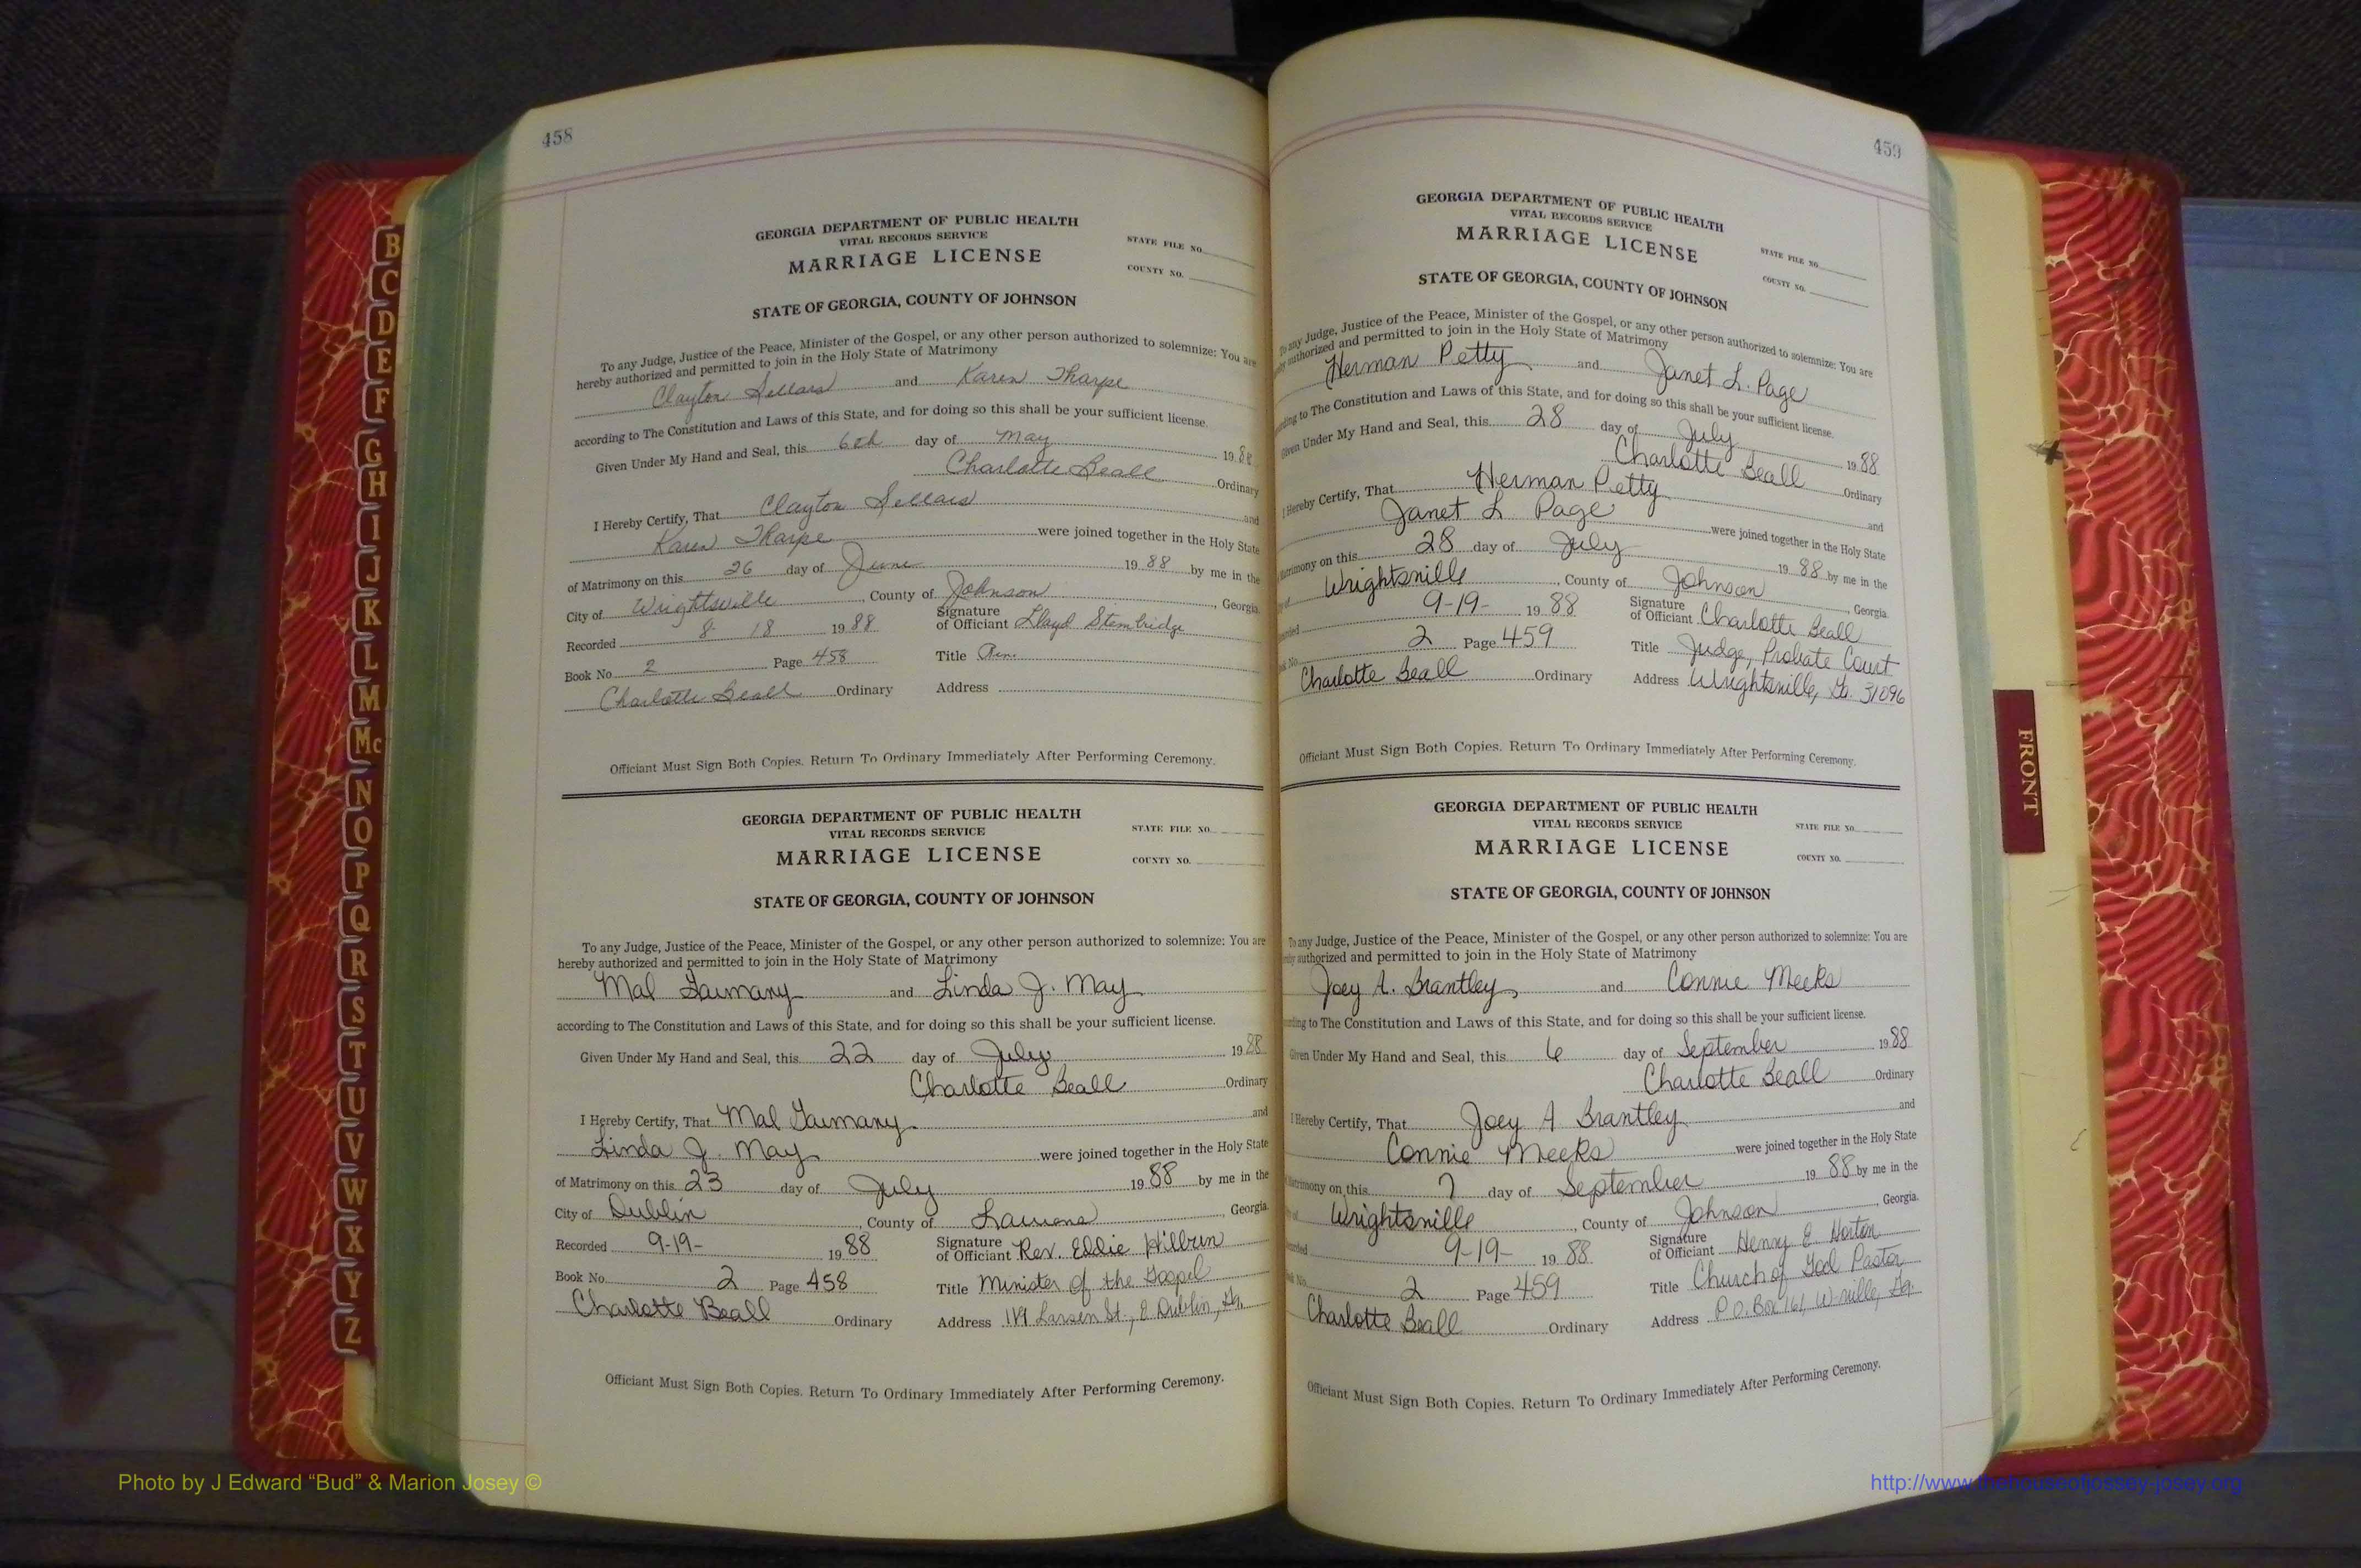 458
GEORGIA DEPARTMENT OF PUBLIC HEALTH
VITAL RECORDS SERVICE
MARRIAGE LICENSE
STATE FILE NO.
COUNTY NO.
STATE OF GEORGIA, COUNTY OF JOHNSON
To any Judge, Justice of the Peace, Minister of the Gospel, or any other person authorized to solemnize: You are
hereby authorized and permitted to join in the Holy State of Matrimony
Clayton Sellars and Karen Tharpe
according to The Constitution and Laws of this State, and for doing so this shall be your sufficient license.
Given Under My Hand and Seal, this 6th day of May 1988
Charlotte Beall Ordinary
I Hereby Certify, That Clayton Sellars and
Karen Tharpe were joined together in the Holy State
of Matrimony on this 26 day of June 1988 by me in the
City of Wrightsville, County of Johnson, Georgia
Recorded 8 18 1988 Signature of Officiant Lloyd Stembridge
Book No. 2 Page 458 Title Rev.
Charlotte Beall Ordinary Address
Officiant Must Sign Both Copies. Return To Ordinary Immediately After Performing Ceremony.
GEORGIA DEPARTMENT OF PUBLIC HEALTH
VITAL RECORDS SERVICE
MARRIAGE LICENSE
STATE FILE NO.
COUNTY NO.
STATE OF GEORGIA, COUNTY OF JOHNSON
To any Judge, Justice of the Peace, Minister of the Gospel, or any other person authorized to solemnize: You are
hereby authorized and permitted to join in the Holy State of Matrimony
Mal and Linda J. May
according to The Constitution and Laws of this State, and for doing so this shall be your sufficient license.
Given Under My Hand and Seal, this 22 day of July 1988
Charlotte Beall Ordinary
I Hereby Certify, That Mal and
Linda J. May were joined together in the Holy State
of Matrimony on this 23 day of July 1988 by me in the
City of Dublin, County of Laurens, Georgia
Recorded 9-19- 1988 Signature of Officiant Rev. Eddie Hilbun
Book No. 2 Page 458 Title Minister of the Gospel
Charlotte Beall Ordinary Address St., E. Dublin, Ga.
Officiant Must Sign Both Copies. Return To Ordinary Immediately After Performing Ceremony.
459
GEORGIA DEPARTMENT OF PUBLIC HEALTH
VITAL RECORDS SERVICE
MARRIAGE LICENSE
STATE FILE NO.
COUNTY NO.
STATE OF GEORGIA, COUNTY OF JOHNSON
To any Judge, Justice of the Peace, Minister of the Gospel, or any other person authorized to solemnize: You are
authorized and permitted to join in the Holy State of Matrimony
Herman Petty and Janet L. Page
to The Constitution and Laws of this State, and for doing so this shall be your sufficient license.
Given Under My Hand and Seal, this 28 day of July 1988
Charlotte Beall Ordinary
I Hereby Certify, That Herman Petty and
Janet L Page were joined together in the Holy State
Matrimony on this 28 day of July 1988 by me in the
Wrightsville, County of Johnson, Georgia
9-19- 1988 Signature of Officiant Charlotte Beall
2 Page 459 Title Judge, Probate Court
Charlotte Beall Ordinary Address Wrightsville, Ga. 31096
Officiant Must Sign Both Copies. Return To Ordinary Immediately After Performing Ceremony.
GEORGIA DEPARTMENT OF PUBLIC HEALTH
VITAL RECORDS SERVICE
MARRIAGE LICENSE
STATE FILE NO.
COUNTY NO.
STATE OF GEORGIA, COUNTY OF JOHNSON
To any Judge, Justice of the Peace, Minister of the Gospel, or any other person authorized to solemnize: You are
authorized and permitted to join in the Holy State of Matrimony
Joey A. Brantley and Connie Meeks
to The Constitution and Laws of this State, and for doing so this shall be your sufficient license.
Given Under My Hand and Seal, this 6 day of September 1988
Charlotte Beall Ordinary
I Hereby Certify, That Joey A Brantley and
Connie Meeks were joined together in the Holy State
Matrimony on this 7 day of September 1988 by me in the
Wrightsville, County of Johnson, Georgia.
9-19- 1988 Signature of Officiant Henry E Horton
2 Page 459 Title Church of God Pastor
Charlotte Beall Ordinary Address P.O. Box 161, W-ville, Ga.
Officiant Must Sign Both Copies. Return To Ordinary Immediately After Performing Ceremony.
B
C
D
E
F
G
H
I
J
K
L
M
Mc
N
O
P
Q
R
S
T
U
V
W
X
Y
Z
FRONT
Photo by J Edward “Bud” & Marion Josey ©
http://www.thehouseofjossey-josey.org